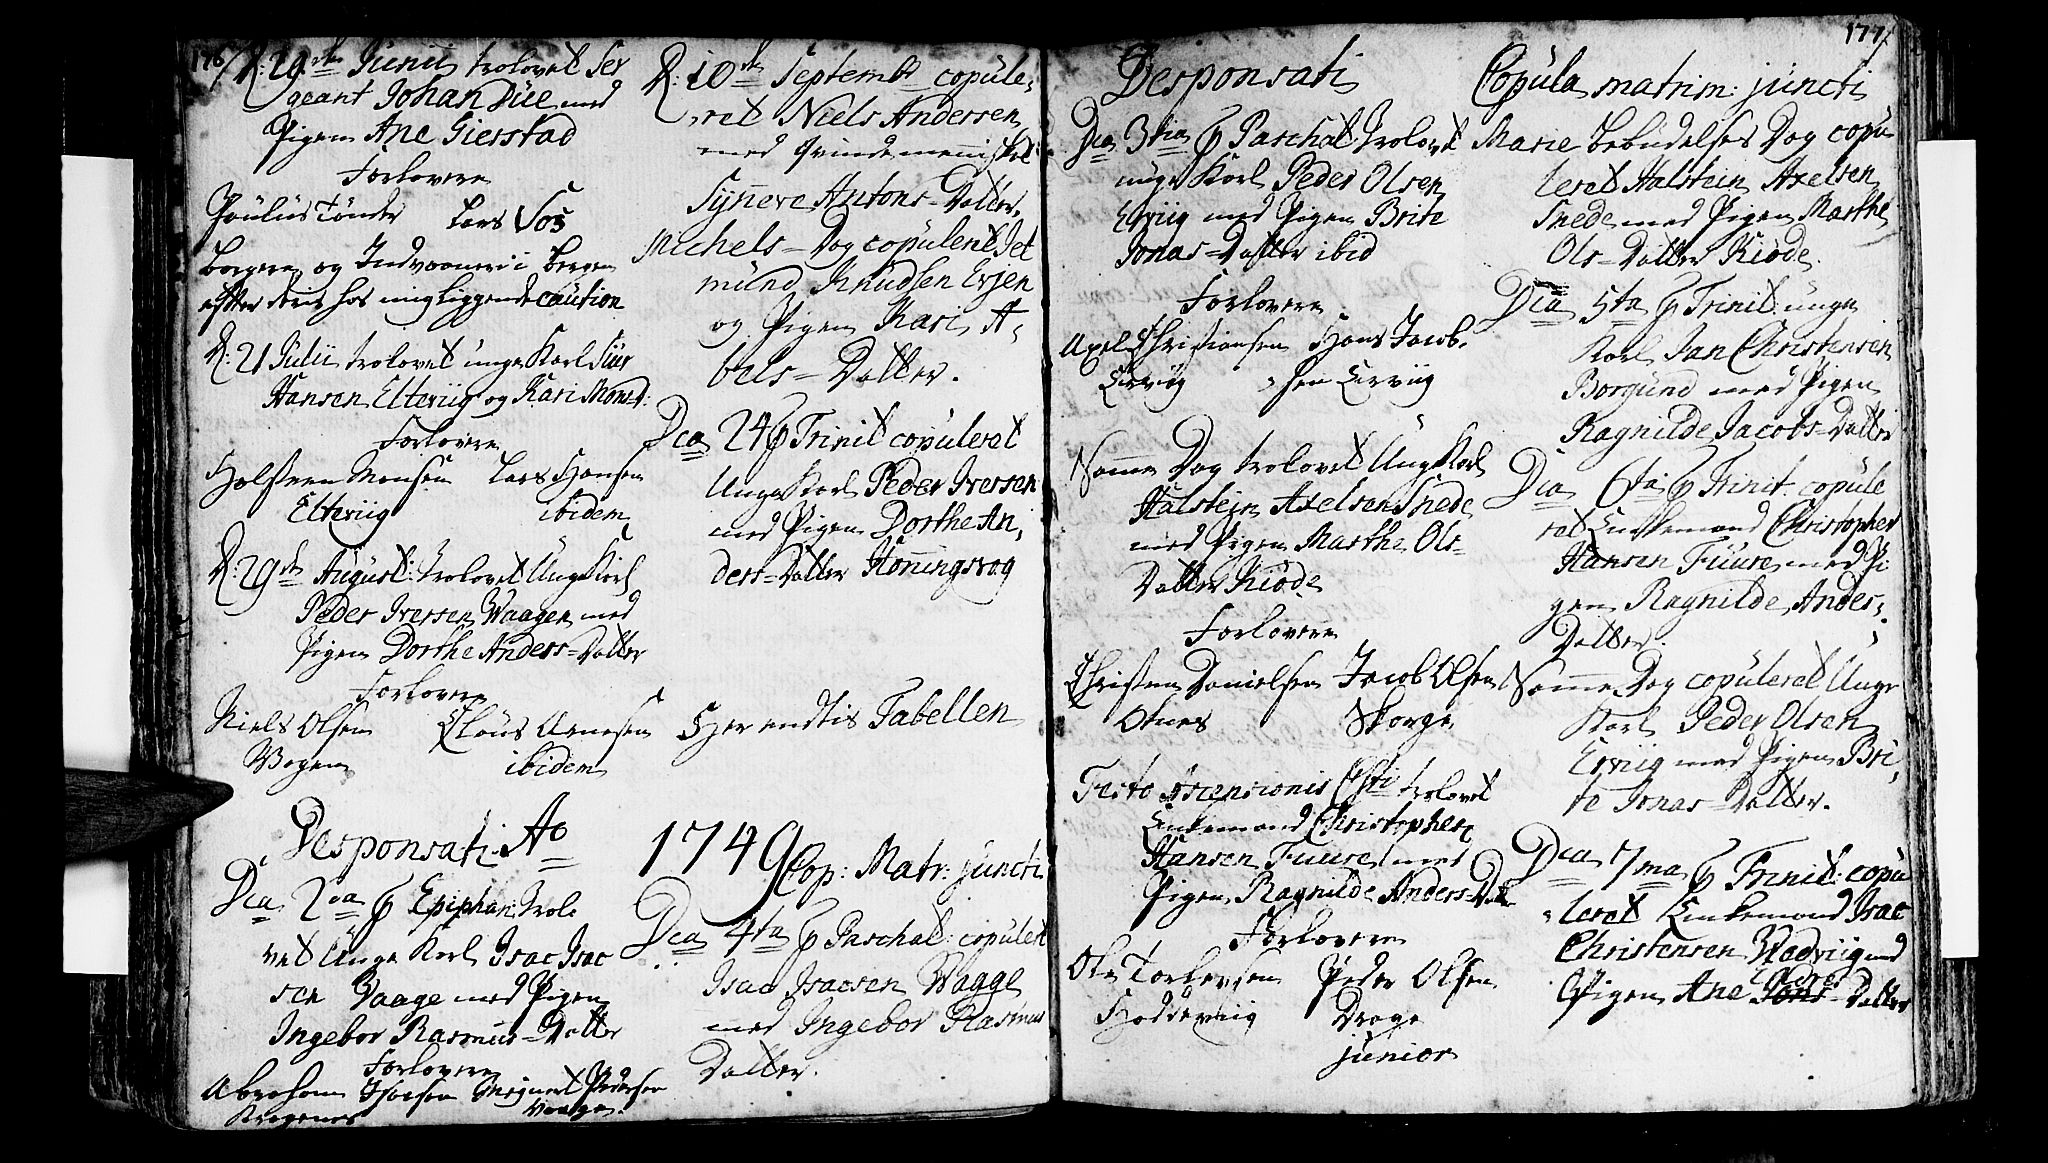 176
D: 29de Junii trolovet Ser
geant Johan Düe med
Pigen Ane Gierstad
Forlovere
Poulus Tønder Lars Vos
borgere og Indvoonere i bergen
efter deris hos mig liggende caution
D: 21 Julii trolovet unge Karl Siur
Hansen Elteviig og Kari Mons=d:
Forlovere
Holsteen Monsen Lars Hansen
Elteviig ibidem
D: 29de August: trolovet Unge Karl
Peder Iversen Waagen med
Pigen Dorthe Anders=Datter
Forlovere
Niels Olsen Claus Arnesen
Wogen ibidem
Desponsati Ao
Dca 2da p Epiphan: trolo
vet Unge Karl Isac Isac
sen Vaage med Pigen
Ingebor Rasmus=Datter
Forlovere
Abraham Isacsen Meynert Pedersen
Kragenes Vaage
D: 10de Septembr copule,
ret Niels Andersen
med Qvindemennisket
Synneve Antons=Datter.
Michels=Dag copuleret Jet
mund Knudsen Erjen
og Pigen Kari A,
bels=Datter.
Dca 24 p Trinit copuleret
Unge Karl Peder Iversen
med Pigen Dorthe An,
ders=Datter Honningsvog
Her endtis Tabellen
1749 Cop: Matr: juncti
Dca 4ta p Paschat: copuleret
Isac Isacsen Wagge
med Ingebor Rasmus
Datter.
177
Desponsati
Dca 3tia p Paschat trolovet
unge Karl Peder Olsen
Erviig med Pigen Brite
Jonas=Datter ibid
Forlovere
Axel Christiansen Hans Jacob,
Erviig sen Erviig
Samme Dag trolovet Unge Karl
Halstejn Axelsen Snede
med Pigen Marthe Ols=
Datter Kiøde
Forlovere
Christen Danielsen Jacob Olsen
Otnes Skorge
Festo Ascensionis Chsti trolovet
Enkemand Christopher
Hansen Fuure med
Pigen Ragnilde Anders=Datter
Forlovere
Ole Torlevsen Peder Olsen
Hoddeviig Drage
junior
Copula matrim: juncti
Marie bebudelses Dag copu
leret Halstein Axelsen
Snede med Pigen Marthe
Ols=Datter Kiøde.
Dca 5ta p Trinit: unge
Karl Jan Christensen
Borgund med Pigen
Ragnilde Jacobs=Datter
Dca 6ta p Trinit: copule
ret Enkemand Christopher
Hansen Fuure med Pi
gen Ragnilde Anders,
Datter.
Samme Dag copuleret Unge
Karl Peder Olsen
Erviig med Pigen Bri,
te Jonas=Datter.
Dca 7ma p Trinit: copu
leret Enkemand Isac
Christensen Wedviig med
Pigen Ane =Datter